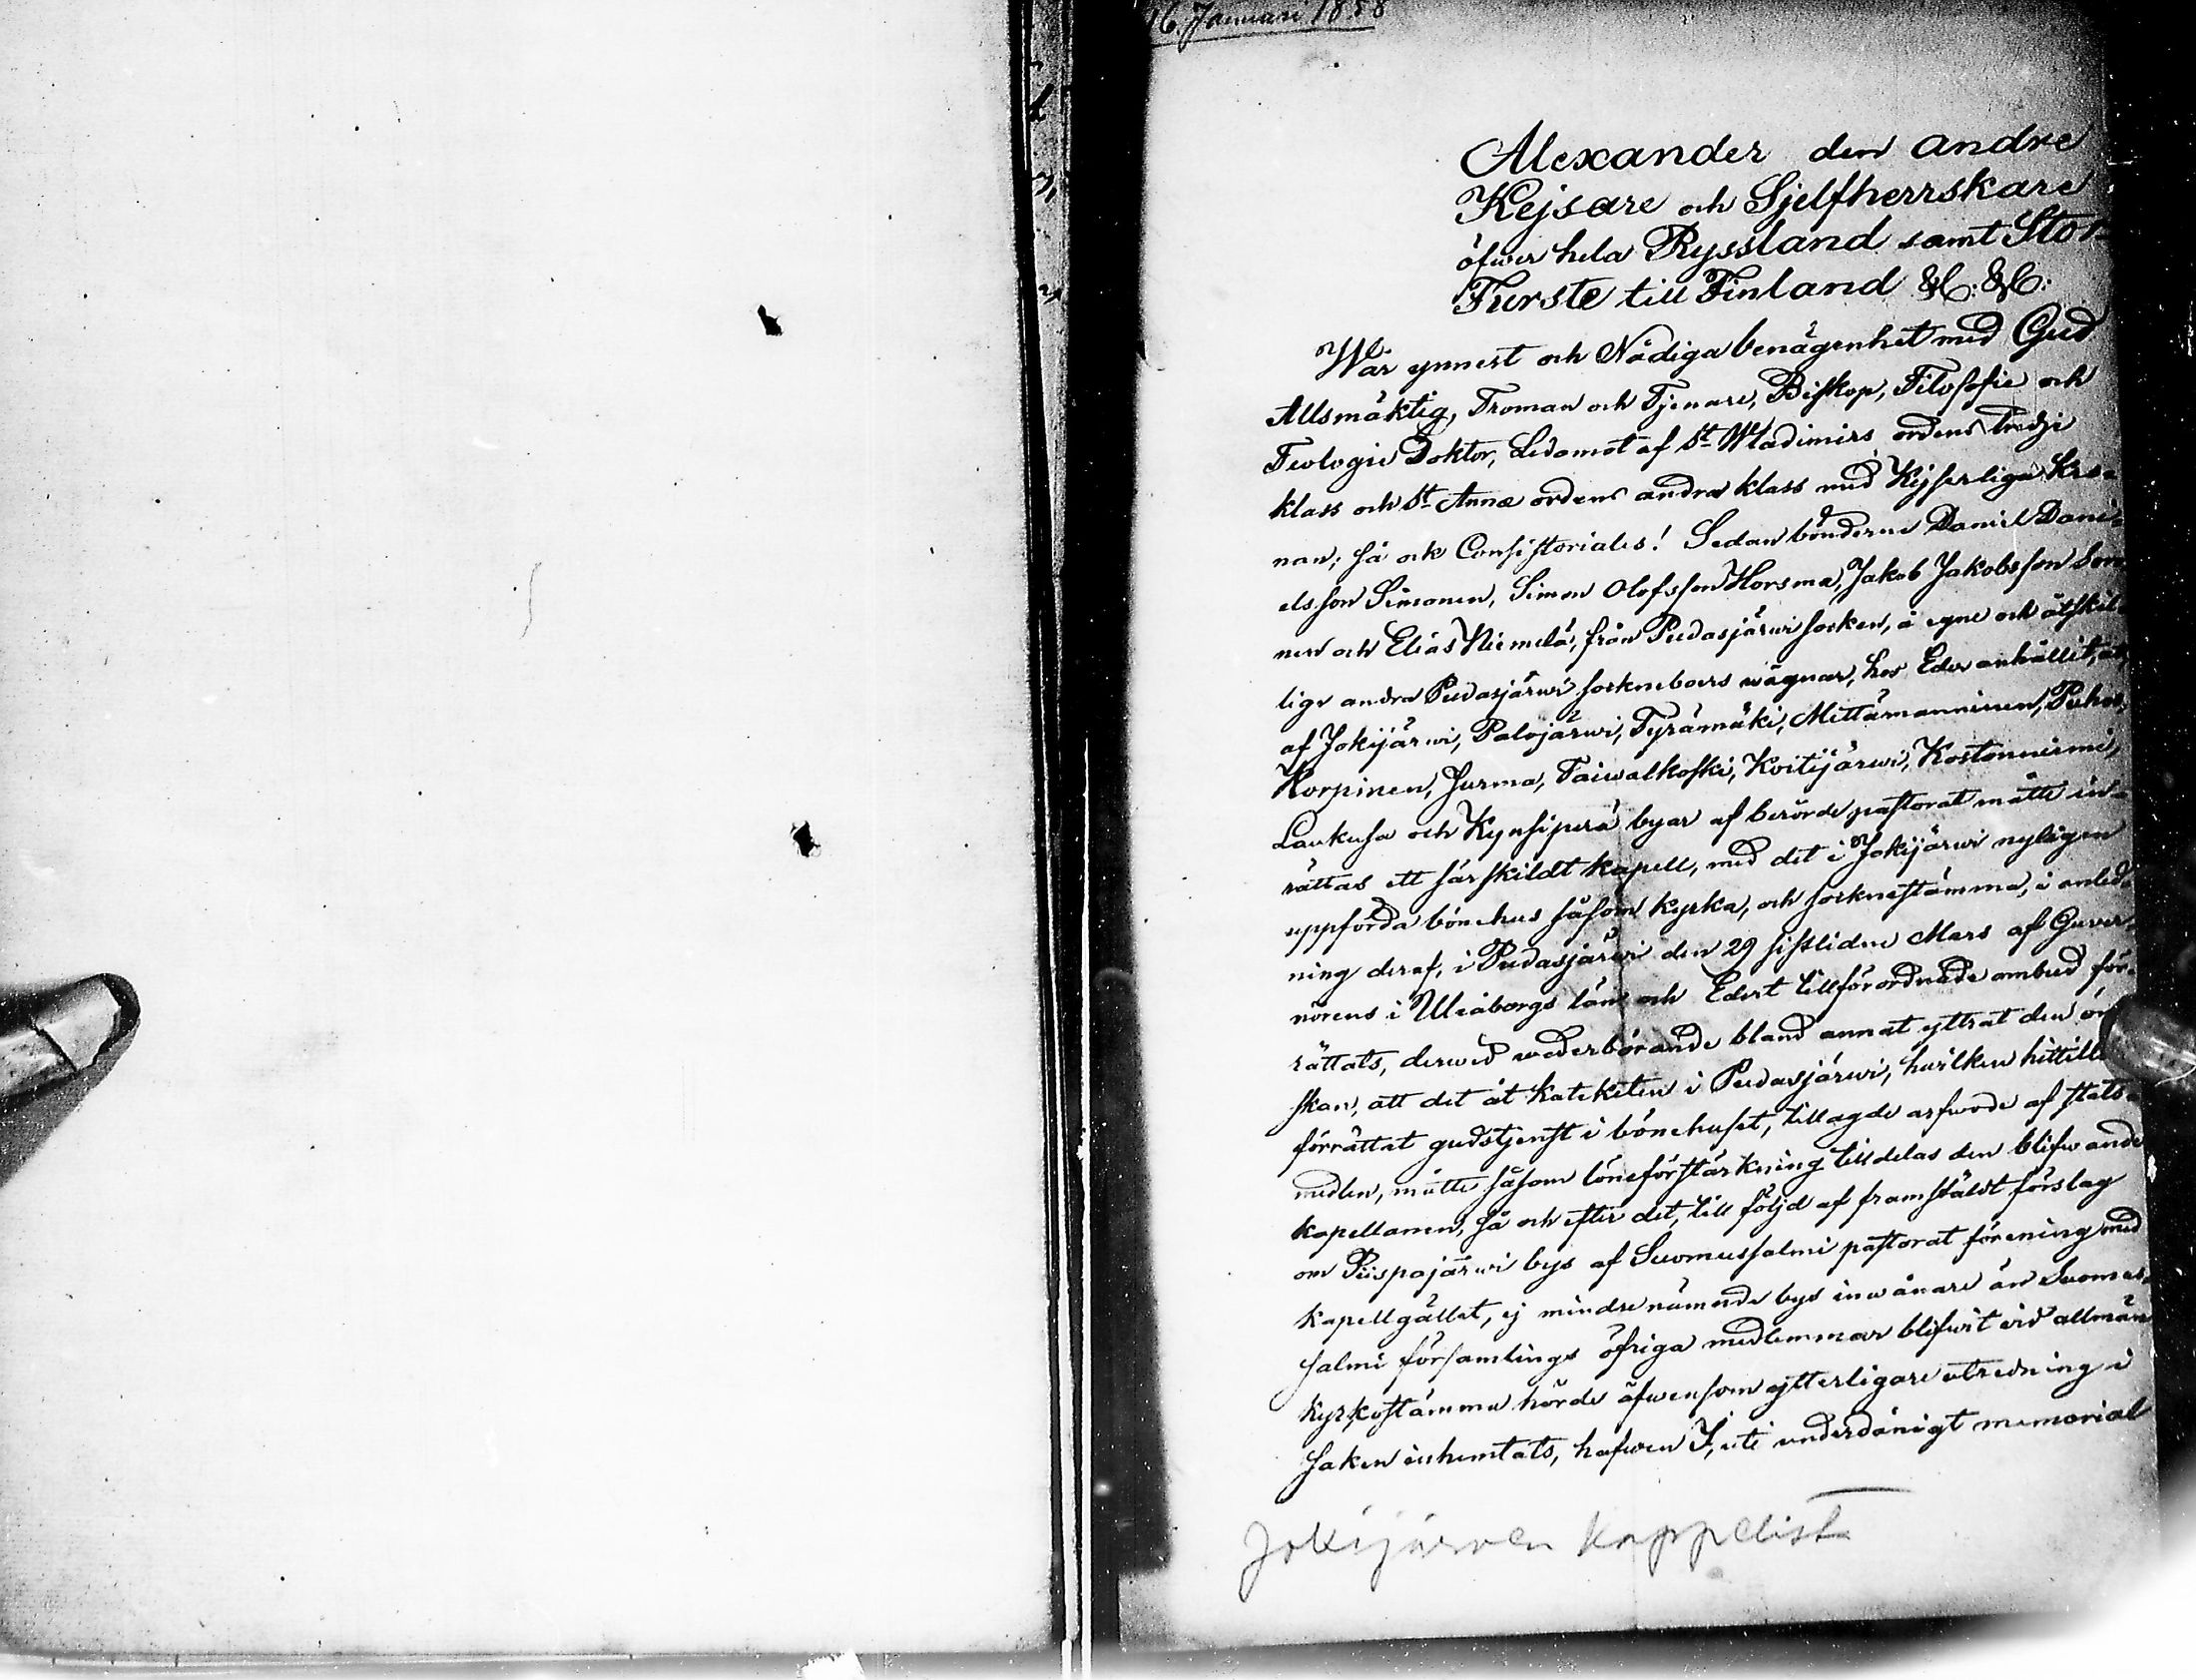 16. Januari 1858
Alexander den andre
Kejsare och Sjelfherrskare
öfwer hela Ryssland samt Stor
Furste till Finland &C: &C:
Wår ynnest och Nådiga benägenhet med Gud
Allsmäktig, Troman och Tjenare, Biskop, Filosofie och
Teologie Doktor, Ledamot af St Wladimirs ordens tredje
klass och St Annæ ordens andra klass med Kejserliga Kro-
nan; så ock Consistoriales! Sedan bönderne Daniel Dani-
elsson Simonen, Simon Olofsson Horsma, Jakob Jakobsson
nen och Elias Niemelä, från Pudasjärwi socken, å egne och åtskil-
lige andra Pudasjärwi sockneboers wägnar, hos Eder anhållit, at
af Jokijärwi, Palojärwi, Tyrämäki, Mettämanninen, Puhos,
Korpinen, Jurma, Taiwalkoski, Koitijärwi, Kostonniemi,
Laukusa och Kynsiperä byar af berörde pastorat måtte in-
rättas ett särskildt kapell, med det i Jokijärwi nyligen
uppförda bönehus såsom kyrka, och socknestämma, i anled-
ning deraf, i Pudasjärwi den 29 sistlidne Mars af Guver-
nörens i Uleåborgs län och Edert tillförordnade ombud för-
rättats, derwid wederbörande bland annat yttrat den ön
skan, att det åt kateketen i Pudasjärwi, hwilken hittills
förrättat gudstjenst i bönehuset, tillagde arfwode af stats-
medlen, måtte såsom löneförstärkning tilldelas den blifwande
kapellanen, så och efter det, till följd af framstäldt förslag
om Piispajärwi bys af Suomussalmi pastorat förening med
kapellgället, ej mindre nämnde bys inwånare än Suomus-
salmi församlings öfriga medlemmar blifwit wid allmän
kyrkostämma hörde äfwensom ytterligare utredning i
saken inhemtats, hafwen I, uti underdånigt memorial
Jokijärven kappelist